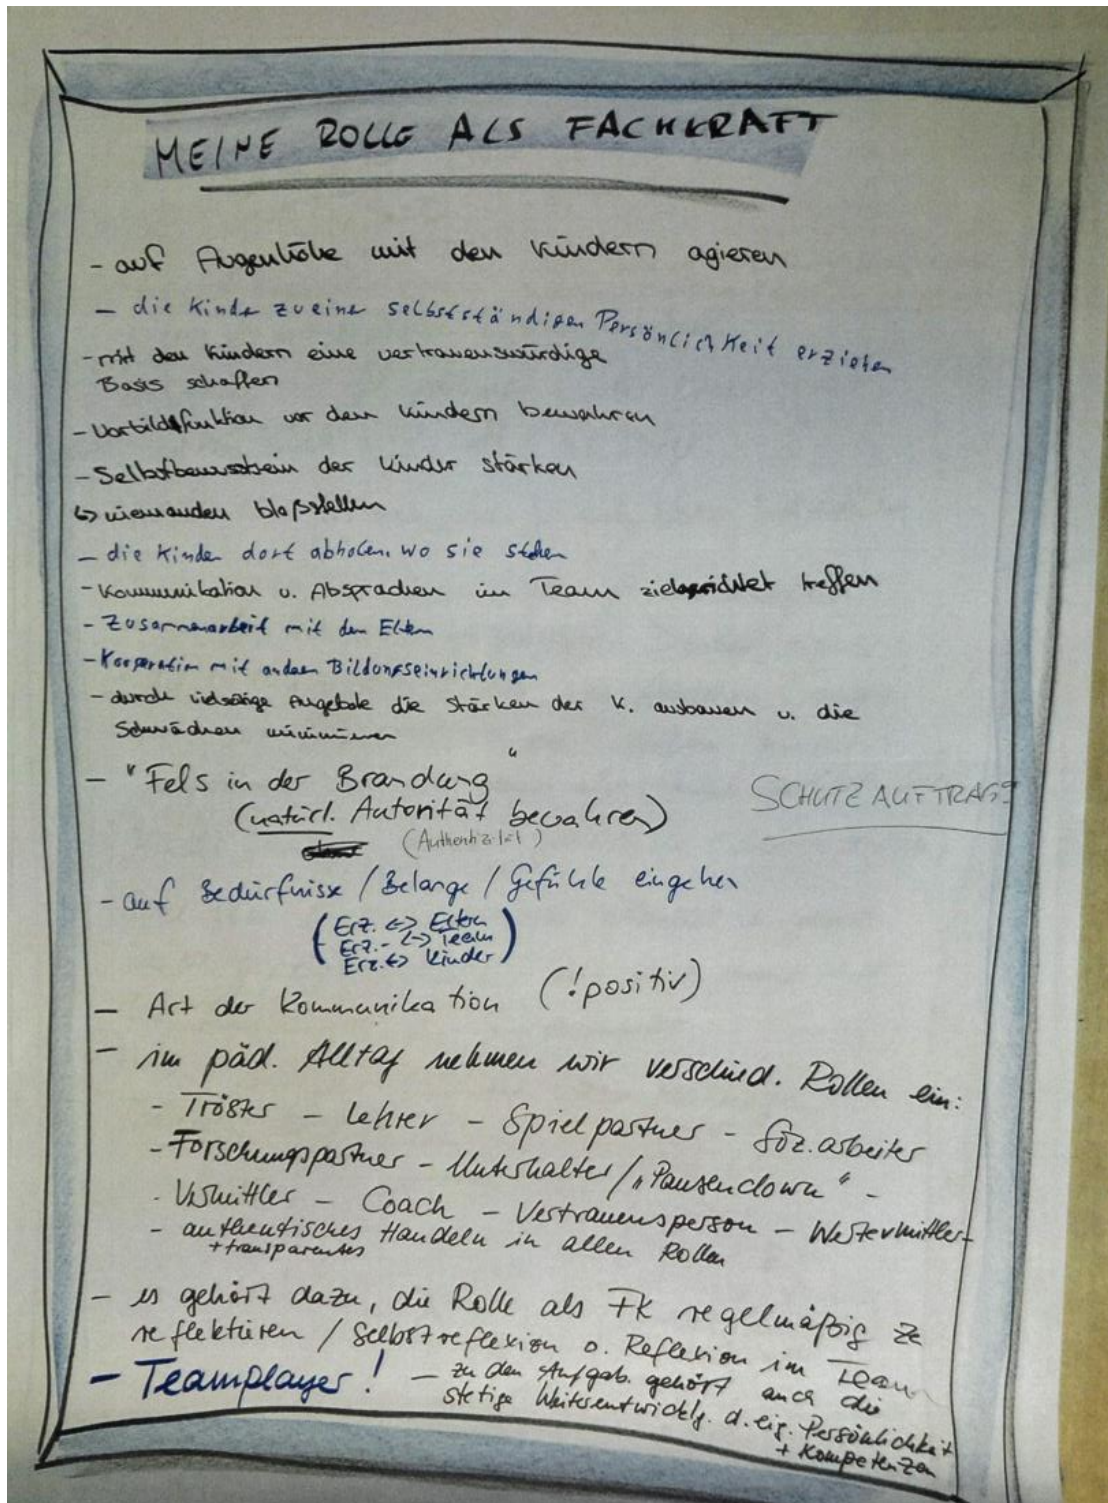 MEINE ROLLE ALS FACHKRAFT
- auf Augenhöhe mit den Kindern agieren
- die Kinder zu einer selbstständigen Persönlichkeit erziehen
- mit den Kindern eine vertrauenswürdige
Basis schaffen
- Vorbildfunktion vor den Kindern bewahren
- Selbstbewusstsein der Kinder stärken
↳ niemanden bloßstellen
- die Kinder dort abholen, wo sie stehen
- Kommunikation u. Absprachen im Team zielgerichtet treffen
- Zusammenarbeit mit den Eltern
- Kooperation mit anderen Bildungseinrichtungen
- durch vielseitige Angebote die Stärken der K. ausbauen u. die
Schwächen minimieren
- "Fels in der Brandung"
(natürl. Autorität bewahren)
(Authentizität)
SCHUTZAUFTRAG!
- auf Bedürfnisse / Belange / Gefühle eingehen
(Erz. <-> Eltern
Erz. <-> Team
Erz. <-> Kinder)
- Art der Kommunikation (!positiv)
- im päd. Alltag nehmen wir verschied. Rollen ein:
- Tröster - Lehrer - Spielpartner - Soz.arbeiter
- Forschungspartner - Unterhalter / "Pausenclown" -
- Vermittler - Coach - Vertrauensperson - Wertevermittler -
- authentisches Handeln in allen Rollen
+ transparentes
- es gehört dazu, die Rolle als FK regelmäßig zu
reflektieren / Selbstreflexion o. Reflexion im Team
- Teamplayer! - zu den Aufgab. gehört auch die
stetige Weiterentwicklg. d. eig. Persönlichkeit
+ Kompetenzen